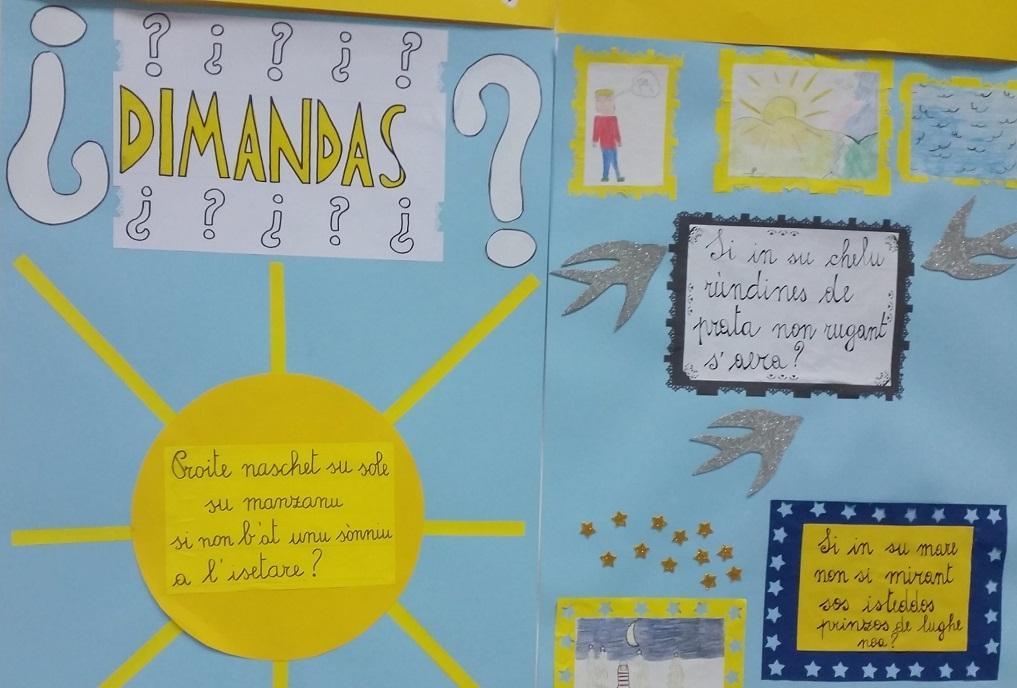 DIMANDAS
Proite naschet su sole
su manzanu
si non b'at unu sònniu
a l'isetare?
Si in su chelu
rùndines de
prata non rugant
s'aera?
Si in su mare
non si mirant
sos isteddos
prinzos de lughe
noa?